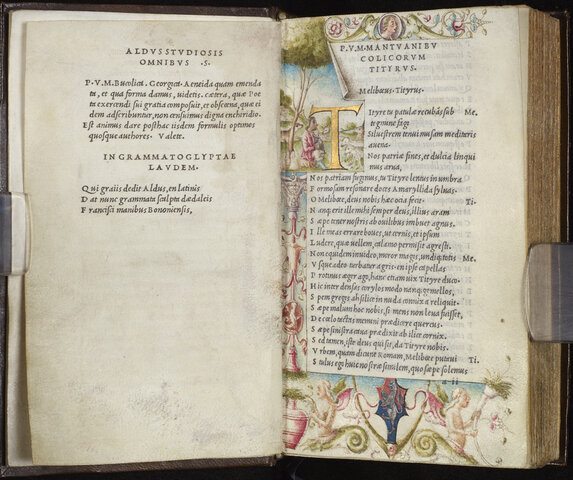 ALDVS STVDIOSIS
OMNIBVS .S.
P. V. M. Bucolica. Georgica. Aeneida quam emenda
ta, et qua forma damus, uidetis. cætera, quæ Poe
ta exercendi sui gratia composuit, et obscœna, quæ ei
dem adscribuntur, non censuimus digna enchiridio.
Est animus dare posthac iisdem formulis optimos
quosque authores. Valete.
IN GRAMMATOGLYPTAE
LAVDEM.
Qui graiis dedit Aldus, en latinis
Dat nunc grammata sculpta dædaleis
Francisci manibus Bononiensis,
P. V. M. MANTVANI BV
COLICORVM
TITYRVS.
Melibœus. Tityrus.
Tityre tu patulæ recubãs sub Me.
tegmine fagi
Siluestrem tenui musam meditaris
auena.
Nos patriæ fines, et dulcia linqui
mus arua,
Nos patriam fugimus, tu Tityre lentus in umbra
Formosam resonare doces Amaryllida syluas.
O Melibœe, deus nobis hæc ocia fecit. Ti.
Nanq; erit ille mihi semper deus, illius aram
Sæpe tener nostris ab ouilibus imbuet agnus.
Ille meas errare boues, ut cernis, et ipsum
Ludere, quæ uellem, calamo permisit agresti.
Non equidem inuideo, miror magis, undiq; totis Me.
Vsque adeo turbatur agris. en ipse capellas
Protinus æger ago, hanc etiam uix Tityre duco.
Hic inter densas corylos modo nanq; gemellos,
Spem gregis ah silice in nuda connixa reliquit.
Sæpe malum hoc nobis, si mens non leua fuisset,
De cœlo tactas memini prædicere quercus.
Sæpe sinistra caua prædixit ab ilice cornix.
Sed tamen, iste deus qui sit, da Tityre nobis.
Vrbem, quam dicunt Romam, Melibœe putaui Ti.
Stultus ego huic nostræ similem, quo sæpe solemus
a ii